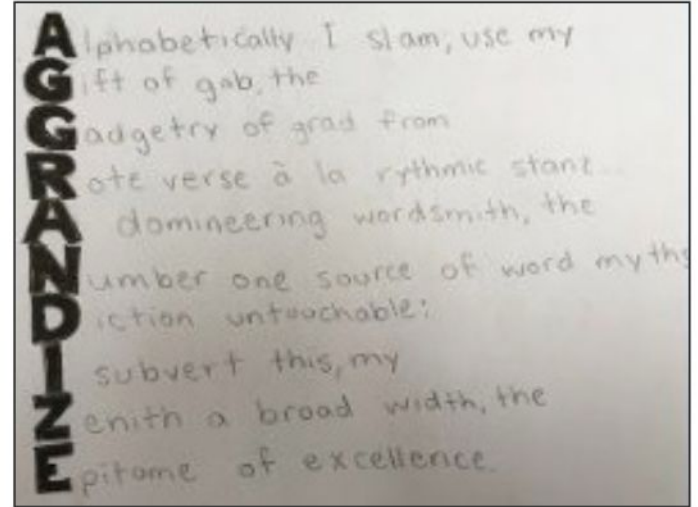 Alphabetically I slam, use my
Gift of gab, the
Gadgetry of grad from
Rote verse à la rythmic stanz...
A domineering wordsmith, the
Number one source of word myths
Diction untouchable:
I subvert this, my
Zenith a broad width, the
Epitome of excellence.